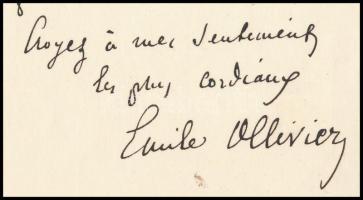 Croyez à mes sentiments
les plus cordiaux
Emile Ollivier